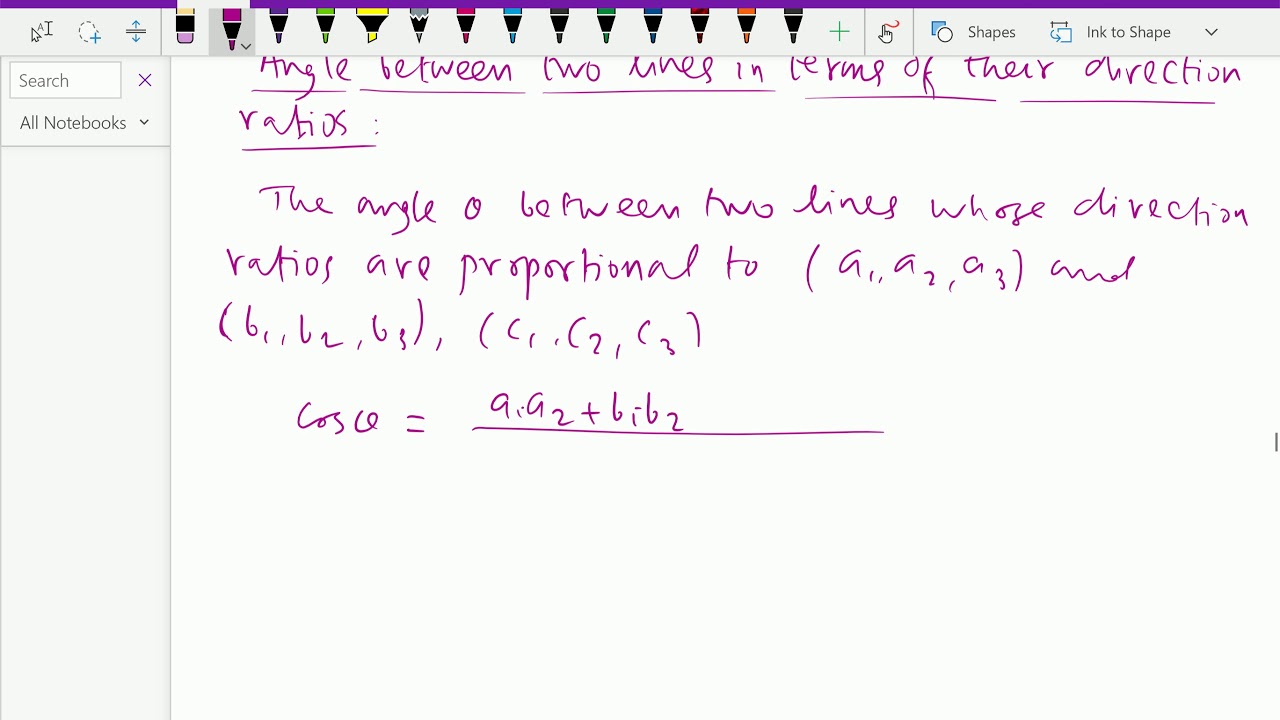 Shapes
Ink to Shape
Search
All Notebooks
Angle between two lines in terms of their direction
ratios :
The angle θ between two lines whose direction
ratios are proportional to (a₁, a₂, a₃) and
(b₁, b₂, b₃), (c₁, c₂, c₃)
cosθ = a₁a₂ + b₁b₂